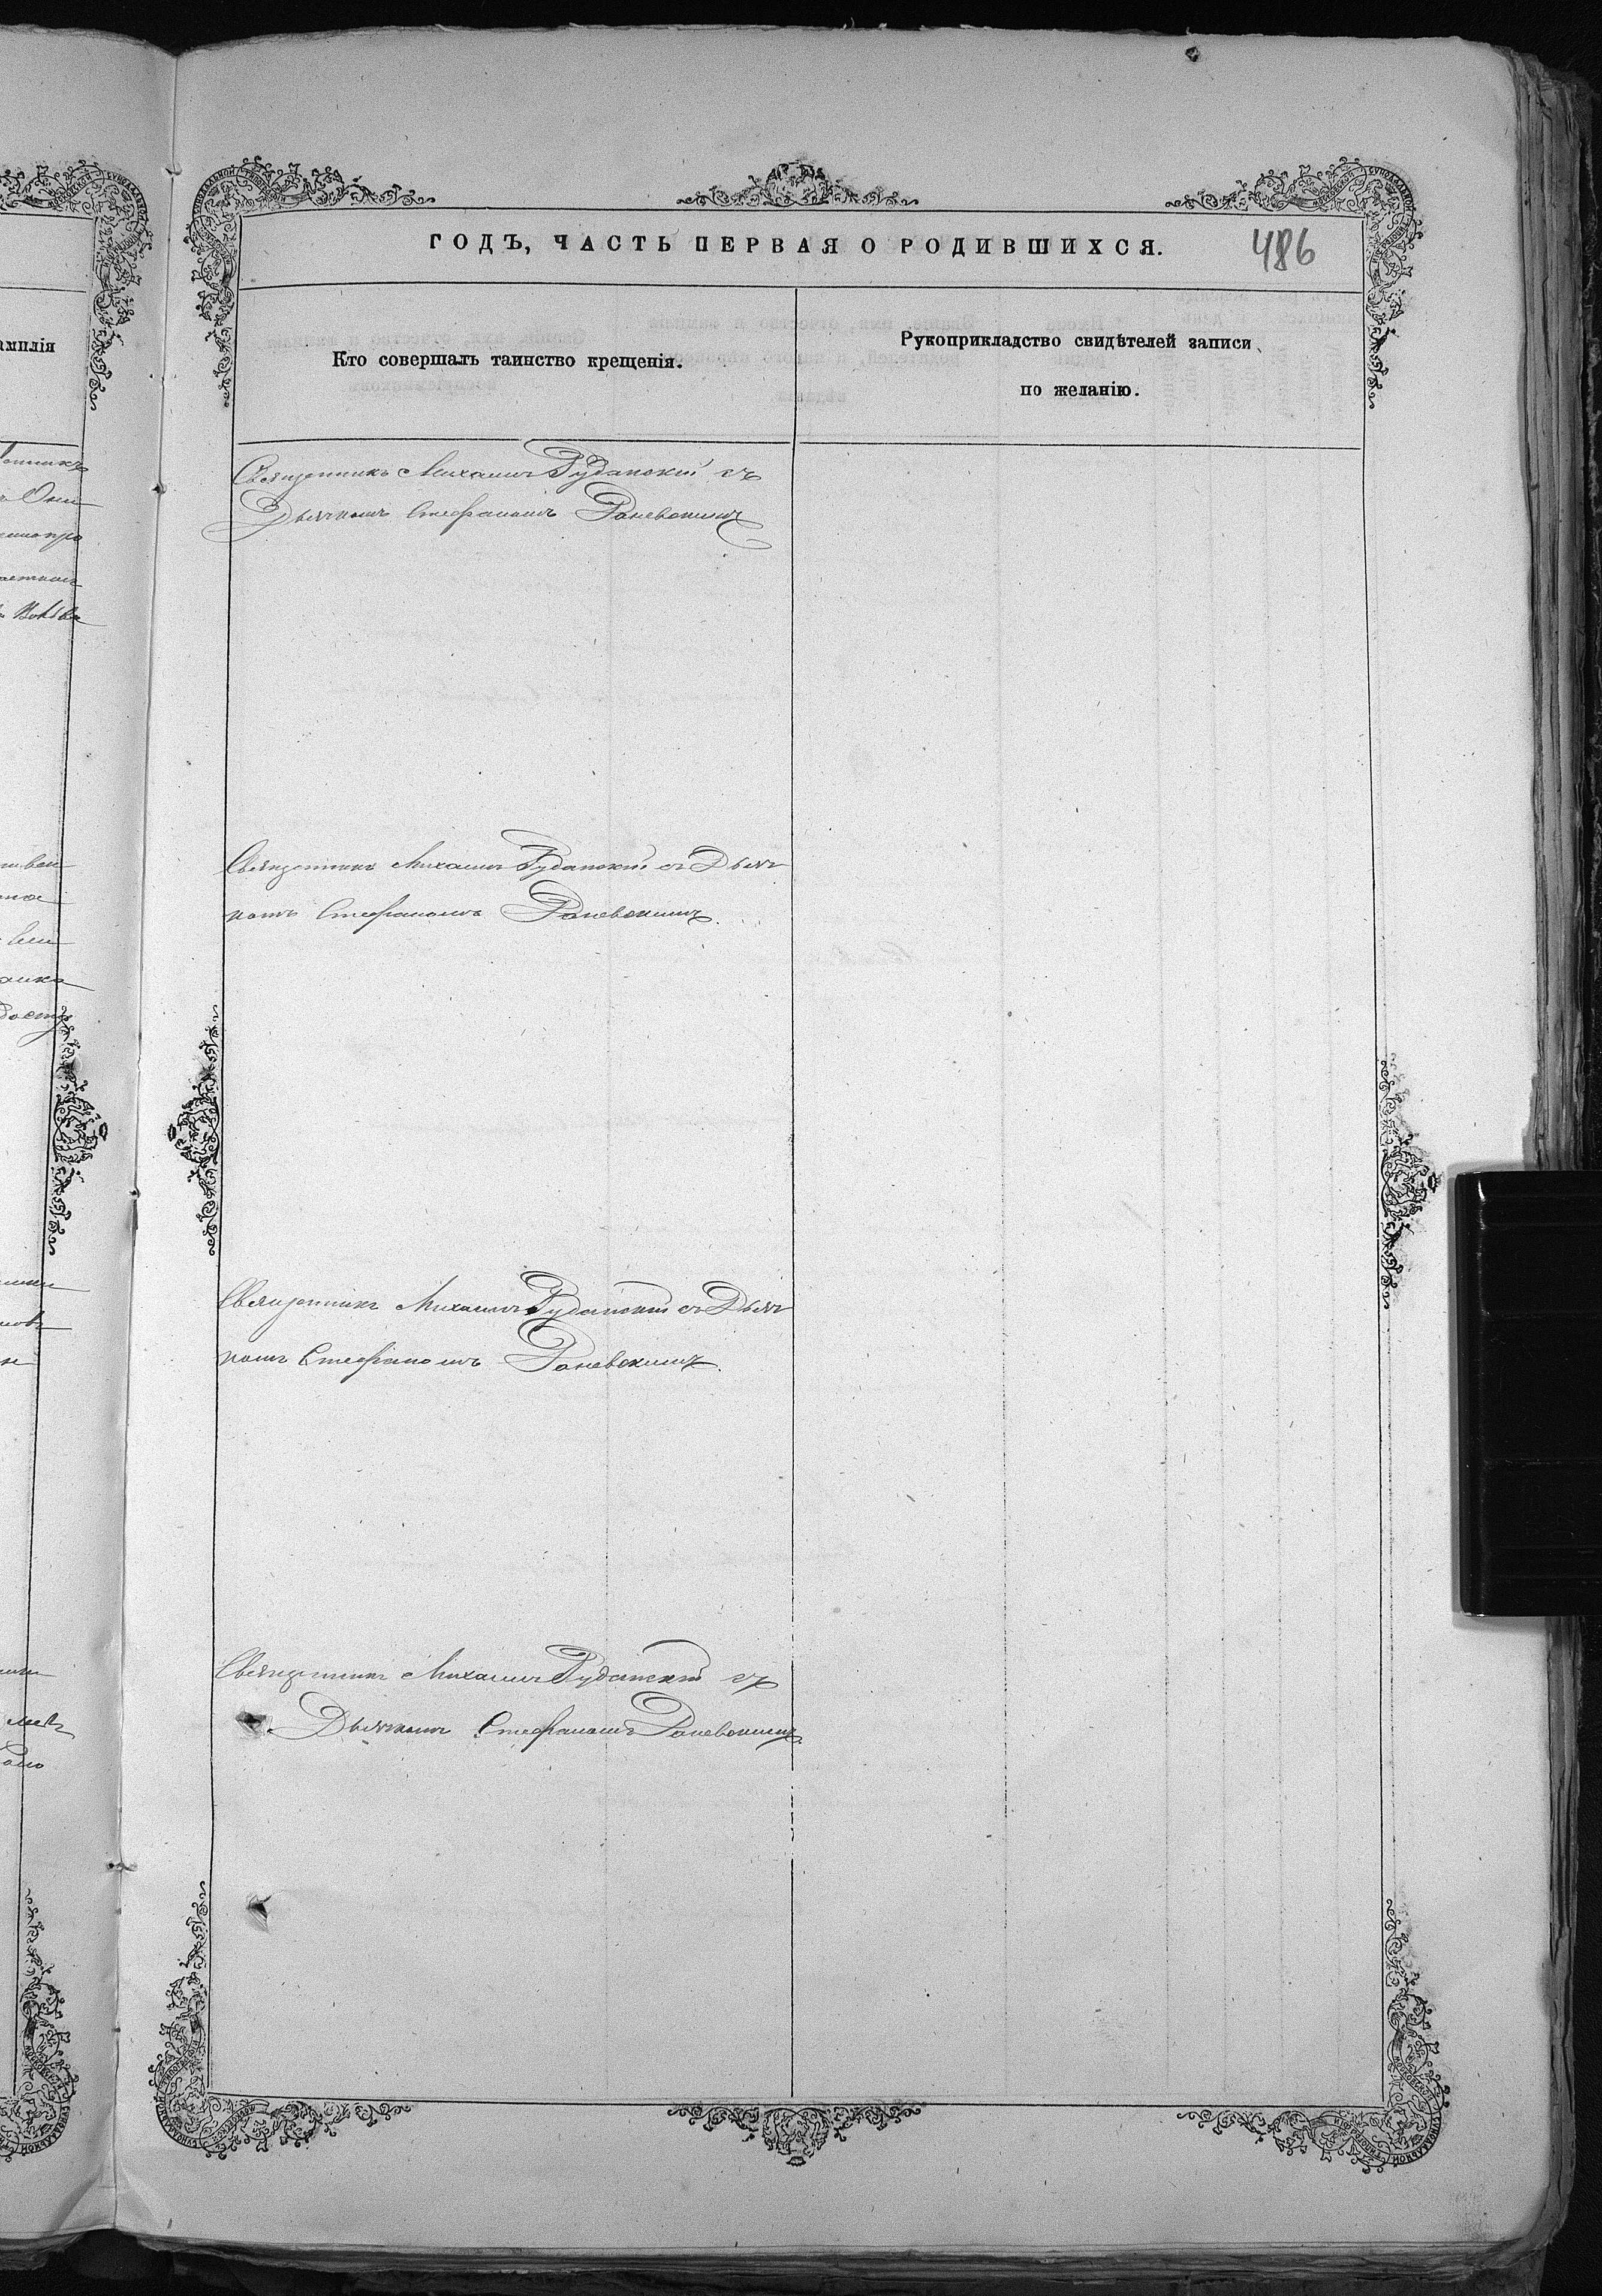 ГОДЪ, ЧАСТЬ ПЕРВАЯ О РОДИВШИХСЯ.
486
амилія
Кто совершалъ таинство крещенія.
Рукоприкладство свидѣтелей записи
по желанію.
Священникъ Михаилъ Руданскій съ
Дьячкомъ Стефаномъ Раневскимъ
Священникъ Михаилъ Руданскій съ Дьяч
комъ Стефаномъ Раневскимъ.
Священникъ Михаилъ Руданскій съ Дьяч
комъ Стефаномъ Раневскимъ.
Священникъ Михаилъ Руданскій съ
Дьячкомъ Стефаномъ Раневскимъ.